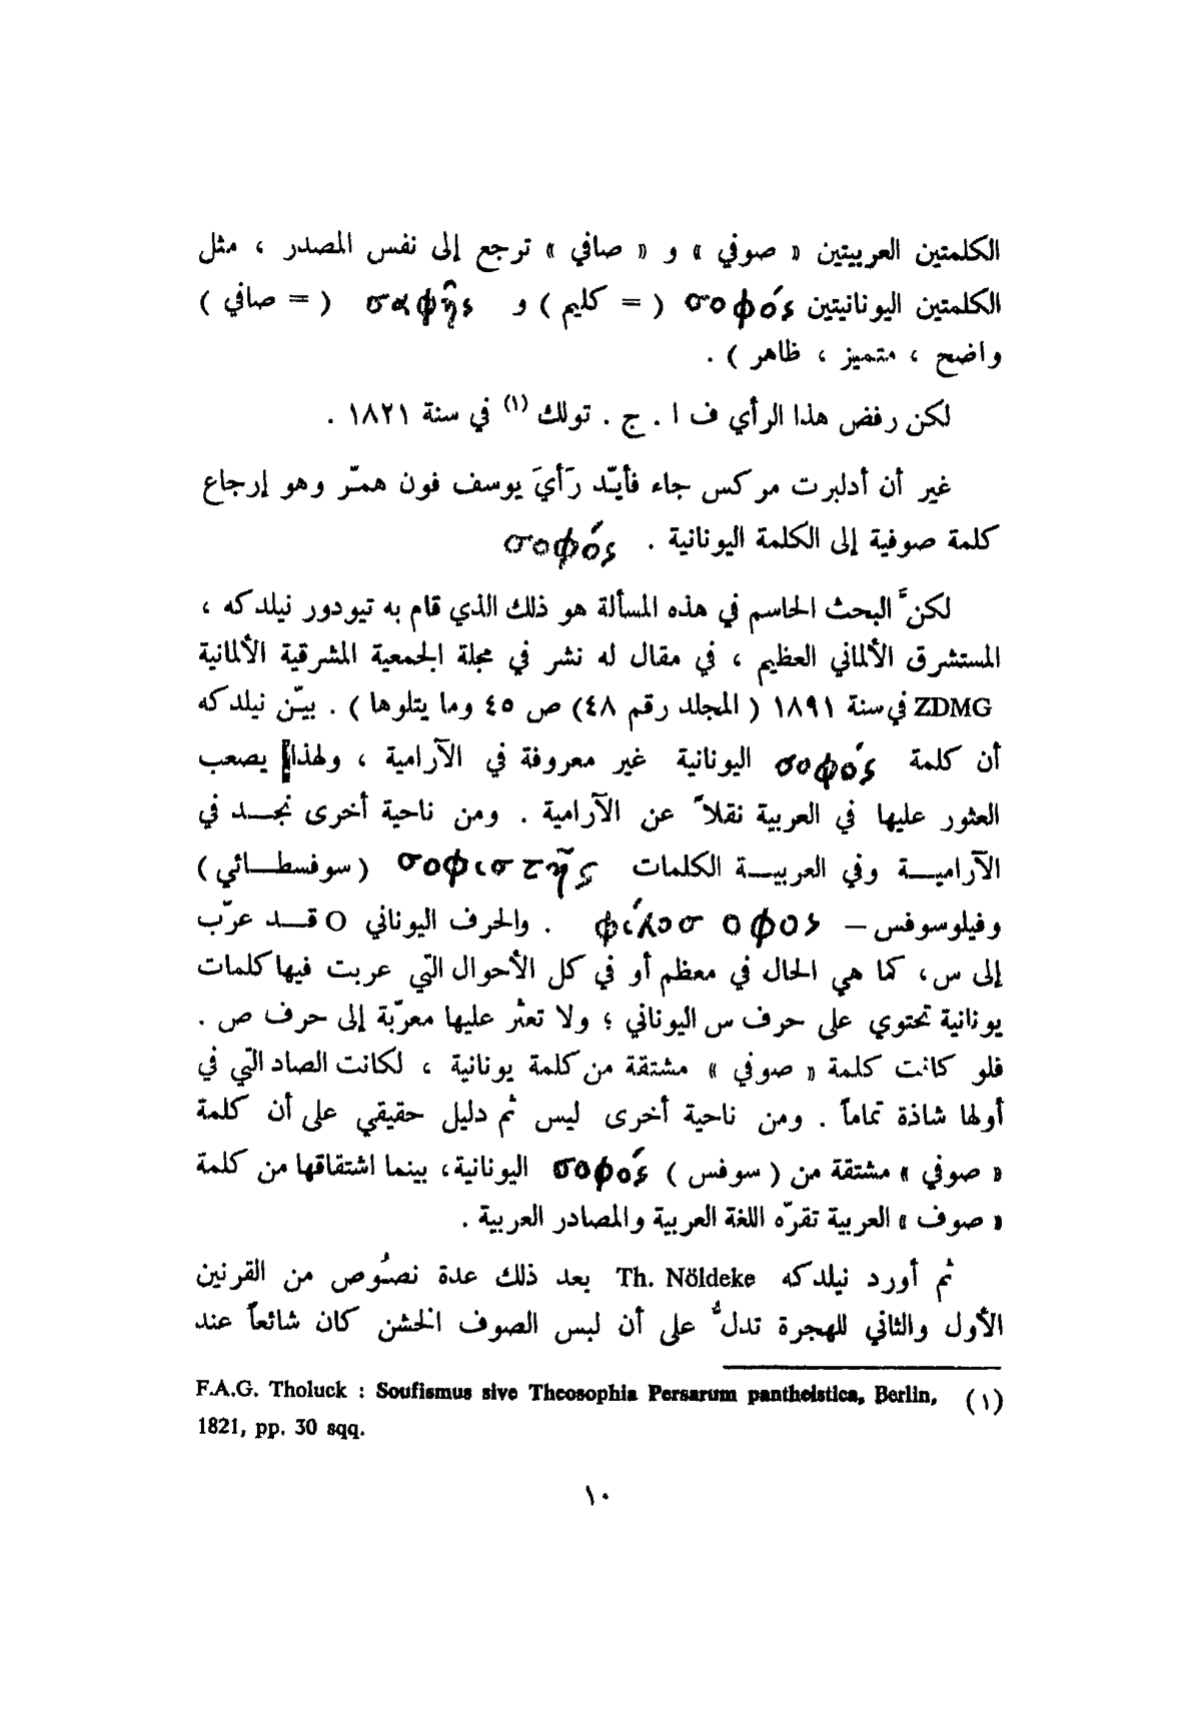 الكلمتين العربيتين « صوفي » و « صافي » ترجع إلى نفس المصدر ، مثل
الكلمتين اليونانيتين σοφός ( = كليم ) و σαφῆς ( = صافي )
واضح ، متميز ، ظاهر ) .
لكن رفض هذا الرأي ف ا . ج . تولك (١) في سنة ١٨٢١ .
غير أن أدلبرت مركس جاء فأيّد رَأيَ يوسف فون همّر وهو إرجاع
كلمة صوفية إلى الكلمة اليونانية . σοφός
لكنَّ البحث الحاسم في هذه المسألة هو ذلك الذي قام به تيودور نيلدكه ،
المستشرق الألماني العظيم ، في مقال له نشر في مجلة الجمعية المشرقية الألمانية
ZDMG في سنة ١٨٩١ ( المجلد رقم ٤٨) ص ٤٥ وما يتلوها ) . بيّن نيلدكه
أن كلمة σοφός اليونانية غير معروفة في الآرامية ، ولهذا يصعب
العثور عليها في العربية نقلاً عن الآرامية . ومن ناحية أخرى نجـــد في
الآراميـــة وفي العربيـــة الكلمات σοφιστῆς (سوفسطـــائي)
وفيلوسوفس — φιλόσοφος . والحرف اليوناني O قـــد عرّب
إلى س، كما هي الحال في معظم أو في كل الأحوال التي عربت فيها كلمات
يونانية تحتوي على حرف س اليوناني ؛ ولا تعثر عليها معرّبة إلى حرف ص .
فلو كانت كلمة « صوفي » مشتقة من كلمة يونانية ، لكانت الصاد التي في
أولها شاذة تماماً . ومن ناحية أخرى ليس ثم دليل حقيقي على أن كلمة
« صوفي » مشتقة من ( سوفس ) σοφός اليونانية، بينما اشتقاقها من كلمة
« صوف » العربية تقرّه اللغة العربية والمصادر العربية .
ثم أورد نيلدكه Th. Nöldeke بعد ذلك عدة نصُوص من القرنين
الأول والثاني للهجرة تدلُّ على أن لبس الصوف الخشن كان شائعاً عند
(١) F.A.G. Tholuck : Soufismus sive Theosophia Persarum pantheistica, Berlin,
1821, pp. 30 sqq.
١٠